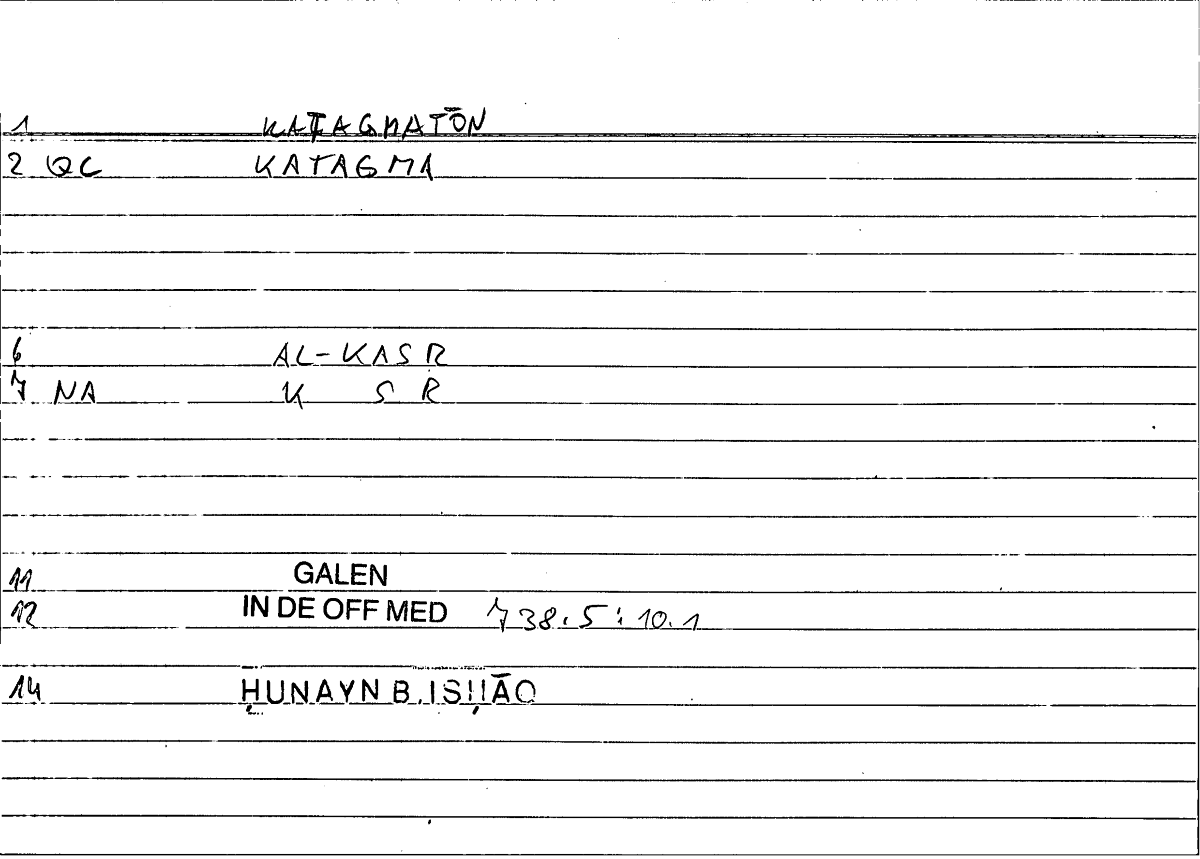 1 KATAGMATŌN
2 QC KATAGMA
6 AL-KASR
7 NA K S R
11 GALEN
12 IN DE OFF MED 738.5:10.1
14 ḤUNAYN B.ISḤĀQ